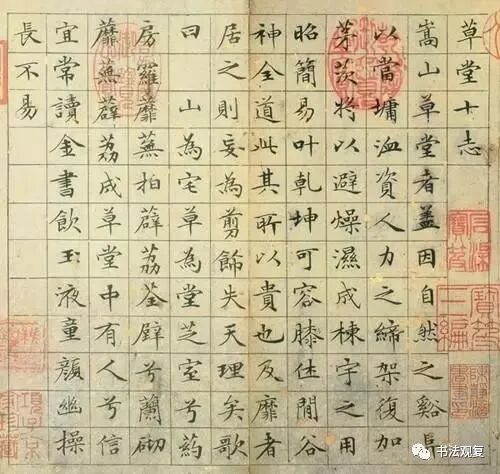 草堂十志
嵩山草堂者盖因自然之谿阜
以當墉洫資人力之締架復加
茅茨将以避燥濕成棟宇之用
昭簡易叶乾坤可容膝休閒谷
神全道此其所以貴也及靡者
居之則妄為剪飾失天理矣歌
曰 山為宅草為堂芝室兮葯
房羅蘼蕪柏薜荔荃壁兮蘭砌
蘼蕪薜荔成草堂中有人兮信
宜常讀金書飲玉液童顏幽操
長不易
书法观复